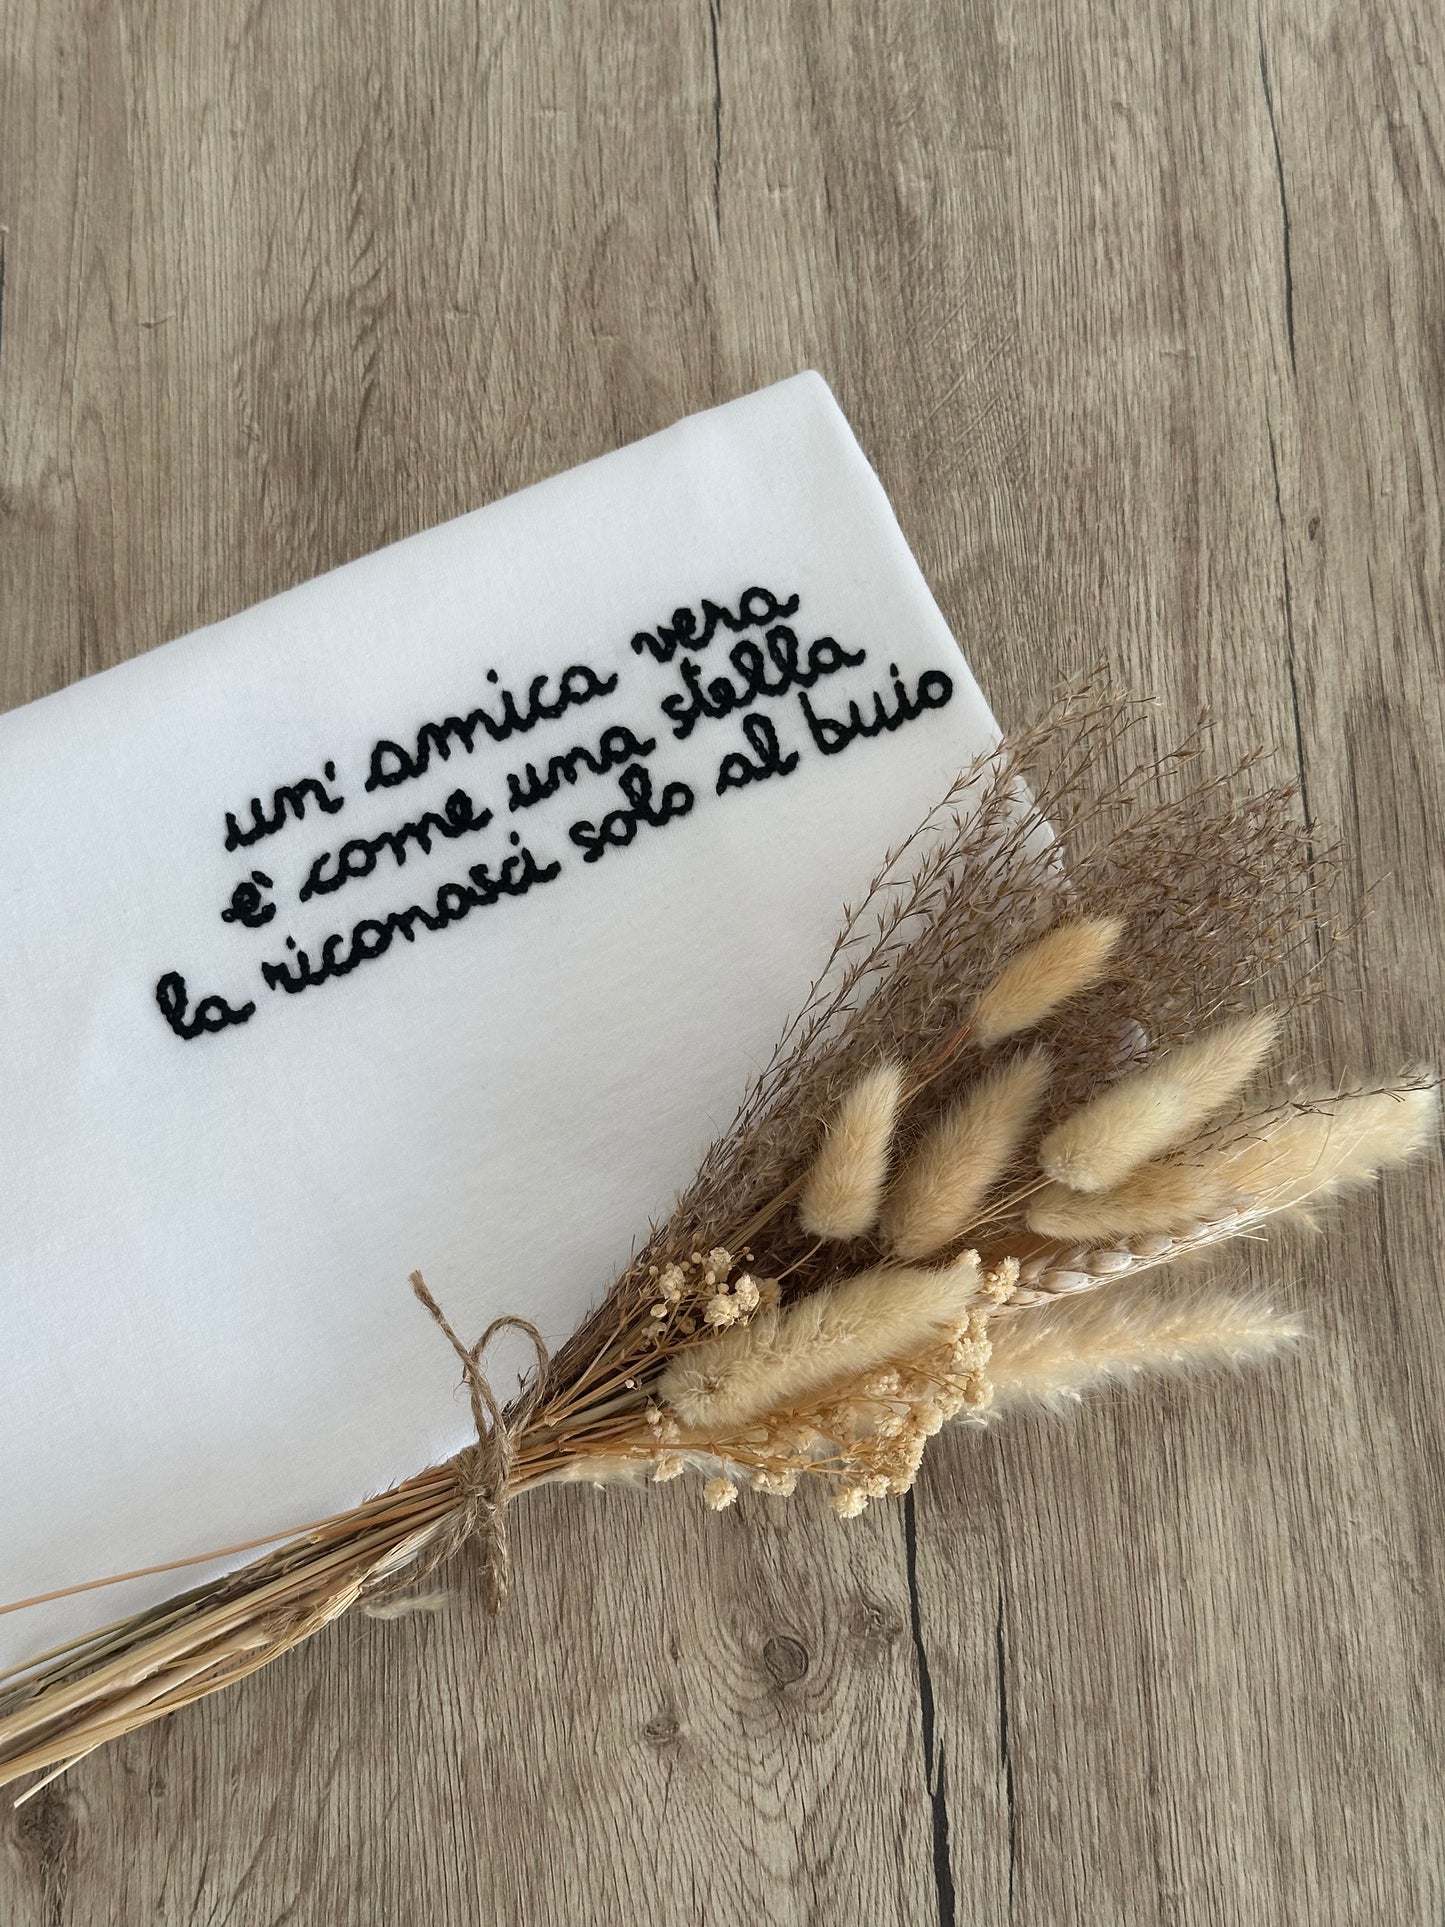 un' amica vera
è come una stella
la riconosci solo al buio